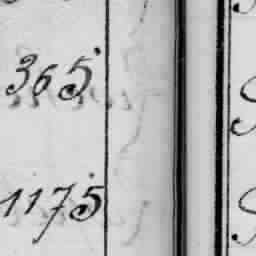 365
1175